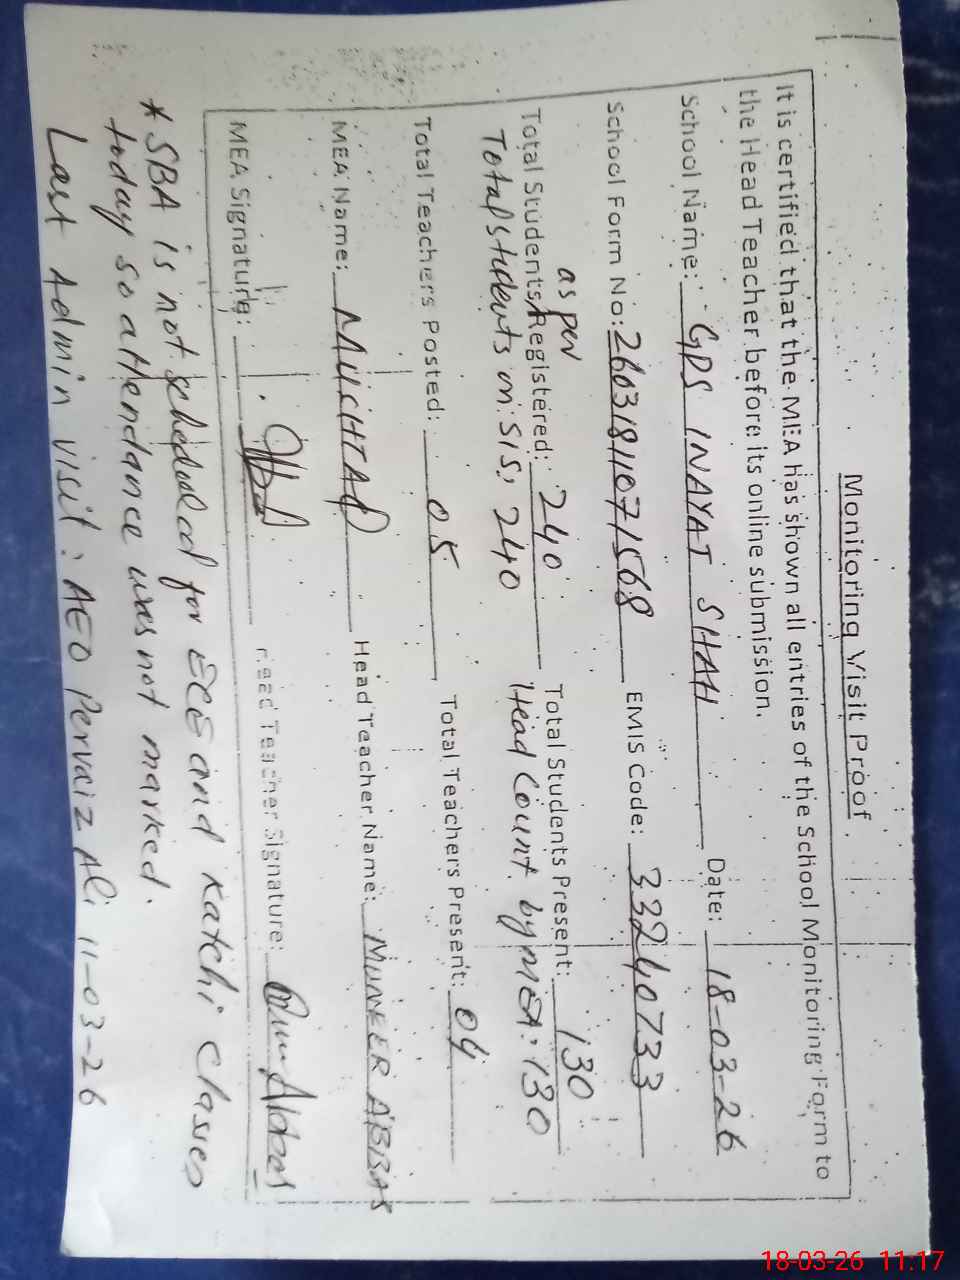 Monitoring Visit Proof
It is certified that the MEA has shown all entries of the School Monitoring Form to
the Head Teacher before its online submission.
School Name: GPS INAYAT SHAH Date: 18-03-26
School Form No: 26031811071568 EMIS Code: 33240733
as per
Total Students Registered: 240 Total Students Present: 130
Total students on SIS: 240 Head Count by MEA: 130
Total Teachers Posted: 05 Total Teachers Present: 04
MEA Name: MUSHTAQ Head Teacher Name: MUNEER ABBAS
MEA Signature: Head Teacher Signature:
* SBA is not scheduled for ECE and Katchi classes
today so attendance was not marked.
Last Admin visit: AEO Pervaiz Ali 11-03-26
18-03-26 11:17